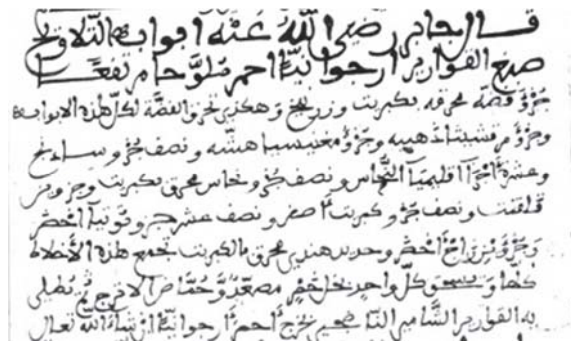 قال جابر رضي الله عنه أبوابه التلاويح
صبغ القوارير أرجوانيا أحمر ملوحا مرتفعا
جزؤ فضة محرقه بكبريت وزرنيخ وهكذي تحرق الفضة لكل هذه الأبوابه
وجزؤ مرقشيثا ذهبيه وجزؤ مغنيسيا هشه ونصف جزؤ
وعشرة أجزاء اقليميا النحاس ونصف جزؤ نحاس محرق بكبريت وجزؤين
قلقنت ونصف جزؤ كبريت أصفر ونصف عشر جزؤ توتيا أخضر
وجزؤين زاج أخضر وحديد هندي محرق بالكبريت تجمع هذه الأخلاط
كلها وكل واحد بخل خمر مصعد وحماض الاترج ثم تطلى
به القوارير الشامي فتخرج أحمر أرجوانيا ان شاء الله تعالى